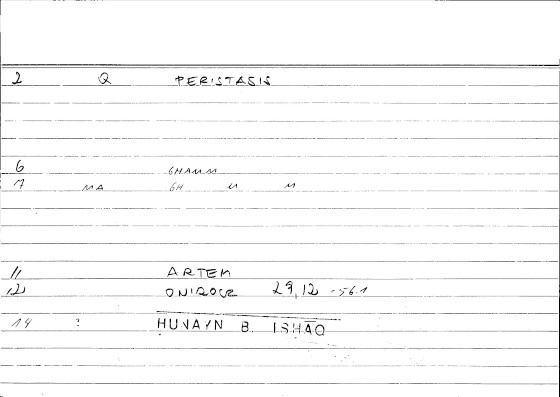 2 Q PERISTASIS
6 GHAMM
7 MA GH M M
11 ARTEM
12 ONIROCR 29,12 -56.1
14 ? ḤUNAYN B. ISḤĀQ